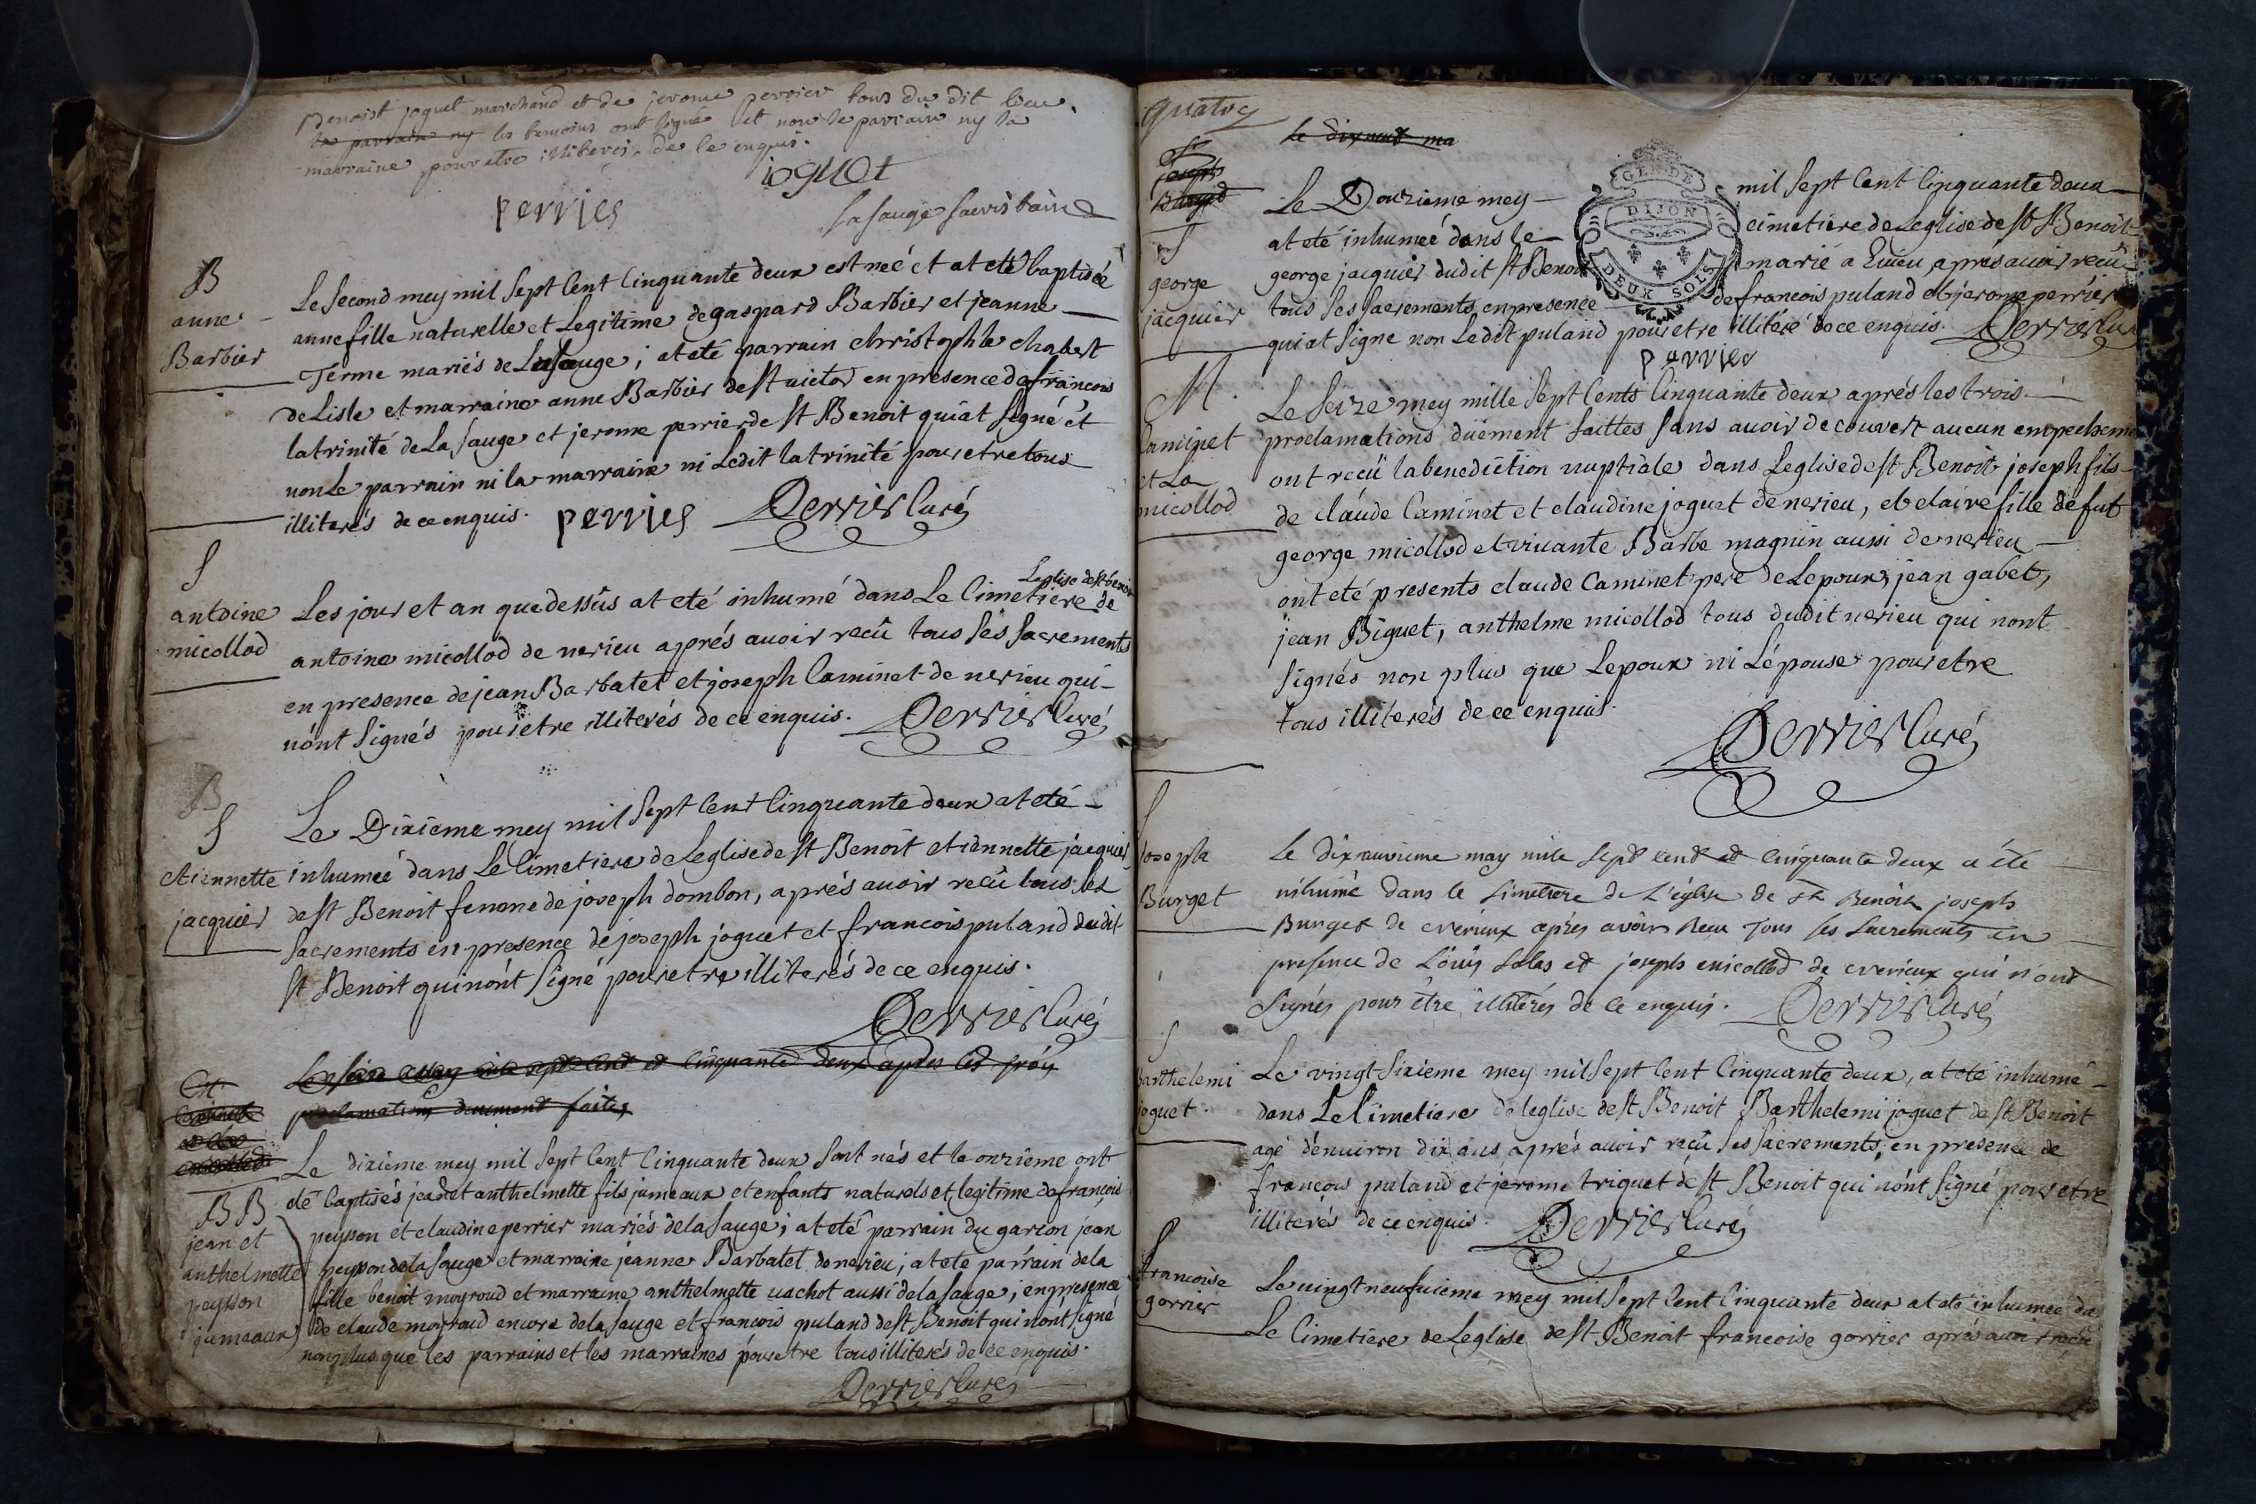 Benoist joquet marchand et de jerome perrier tous du dit lieu
le parrain ny les temoins ont signé et non le parrain ny la
marraine pour etre illiterés de ce enquis.
ioguet
perrier
B
anne
Barbier
Le second mey mil sept cent cinquante deux est neé et at eté baptiseé
anne fille naturelle et legitime de gaspard Barbier et jeanne
Terme mariés de Lasauge; at eté parrain christophle chabert
de Lisle et marraine anne Barbier de st victor en presence de francois
latrinité de La sauge et jerome perrier de st Benoit qui at signé et
non le parrain ni la marraine ni Ledit latrinité pour etre tous
illiterés de ce enquis. perrier Perrier Curé
S
antoine
micollod
Leglise de st benoit
Les jour et an que dessûs at eté inhumé dans Le Cimetiere de
antoine micollod de nerieu aprés auoir recû tous ses sacrements
en presence de jean Barbatet et joseph Caminet de nerieu qui
nónt signés pour etre illiterés de ce enquis. Perrier Curé
B
S
etiennette
jacquier
Le Dixième mey mil sept cent cinquante deux at eté
inhumeé dans Le Cimetiere de Leglise de st Benoit etiennette jacquier
de st Benoit femme de joseph dombon, aprés auoir recû tous les
sacrements en presence de joseph joguet et francois puland dudit
st Benoit qui nónt signé pour etre illiterés de ce enquis.
Perrier Curé
Le seize may mile sept cent et cinquante deux apres les trois
proclamations duement faites
BB
jean et
anthelmette
peysson
jumeaux
Le dixième mey mil sept cent cinquante deux sont nés et le onzième ont
été baptisés jean et anthelmette fils jumeaux et enfants naturels et legitime de françois
peysson et claudine perrier mariés de la sauge; at eté parrain du garcon jean
peysson de la sauge et marraine jeanne Barbatet de nerieu; at eté parrain de la
fille benoit moyroud et marraine anthelmette vachot aussi de la sauge; en presence
de claude moyroud encore de la sauge et francois puland de st Benoit qui nónt signé
non plus que les parrains et les marraines pour etre tous illiterés de ce enquis.
Perrier Curé
quatre
Le dix neuf ma
S
joseph
Burget
GEN. DE
DIJON
DEUX SOLS
S
george
jacquier
Le Douzieme mey mil sept cent cinquante deux
at eté inhumeé dans le cimetiere de Leglise de st Benoit
george jacquier dudit st Benoit marié a Lucieu, apres auoir recû
tous ses sacrements en presence de francois puland et jerome perrier
qui at signe non Ledit puland pour etre illiteré de ce enquis. Perrier Curé
perrier
M.
Caminet
et La
micollod
Le seize mey mille sept cents cinquante deux aprés les trois
proclamations düement faittes sans auoir decouvert aucun empecheme
ont recû la benediction nuptiale dans Leglise de st Benoit joseph fils
de cláude Caminet et claudine joguet de nerieu, et claire fille de fut
george micollod et viuante Barbe magnin aussi de nerieu
ont eté presents claude Caminet pere de Lepoux, jean gabet,
jean Biguet, anthelme micollod tous dudit nerieu qui nont
signés non plus que Lepoux ni Lépouse pour etre
tous illiterés de ce enquis.
Perrier Curé
S
Joseph
Burget
Le dixneuvieme may mile sept cent et cinquante deux a été
inhumé dans le Cimetiere de L'église de st Benoit joseph
Burget de everieux après avoir Recu Tous ses Sacrements en
presence de Loüis Solas et joseph micollod de everieux qui n'ont
signés pour être illiterés de ce enquis. Perrier Curé
S
Barthelemi
joguet
Le vingt sixieme mey mil sept cent cinquante deux, at eté inhumé
dans Le Cimetiere de leglise de st Benoit Barthelemi joguet de st Benoit
agé dénuiron dix ans aprés auoir reçû ses sacrements, en presence de
françois puland et jerome triquet de st Benoit qui nónt signé pour etre
illiterés de ce enquis. Perrier Curé
S
francoise
gorrier
Le uingt neufuieme mey mil sept cent cinquante deux at eté inhumee da
Le Cimetiere de Leglise de st Benoit francoise gorrier aprés auoir reçû